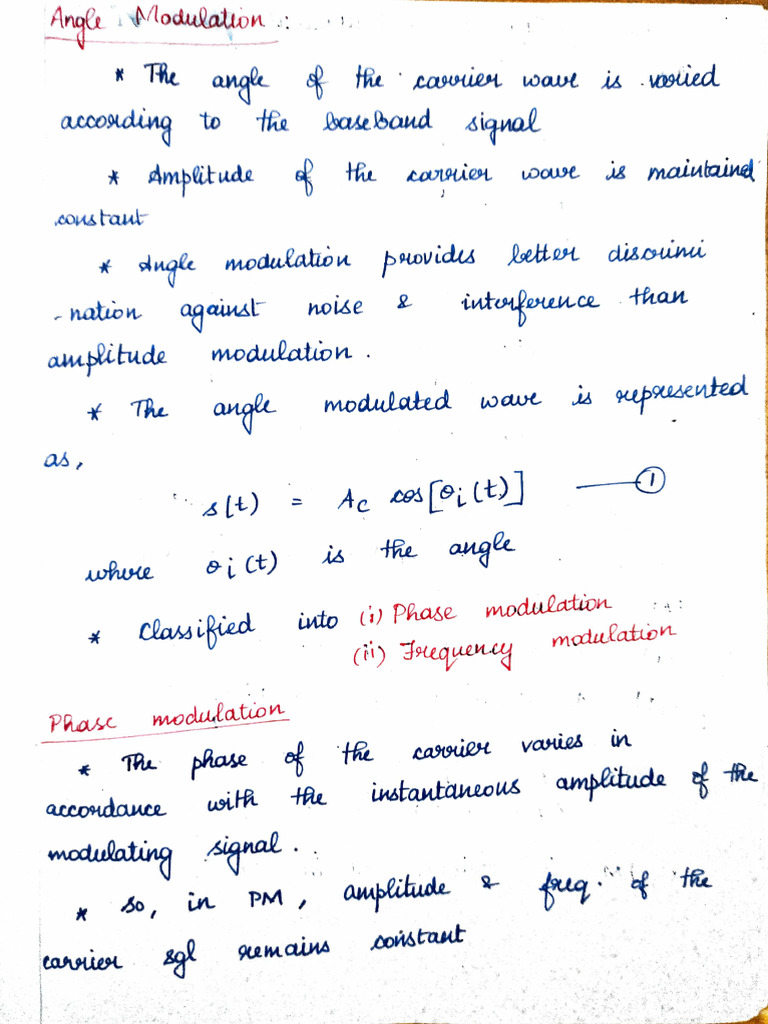 Angle Modulation :
* The angle of the carrier wave is varied
according to the baseband signal
* Amplitude of the carrier wave is maintained
constant
* Angle modulation provides better discrimi
-nation against noise & interference than
amplitude modulation.
* The angle modulated wave is represented
as,
s(t) = Ac cos[θi(t)] —— ①
where θi(t) is the angle
* Classified into (i) Phase modulation
(ii) Frequency modulation
Phase modulation
* The phase of the carrier varies in
accordance with the instantaneous amplitude of the
modulating signal.
* so, in PM, amplitude & freq. of the
carrier sgl remains constant